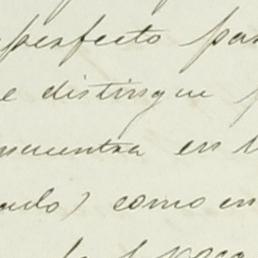 perfecto par
e distingue p
ncuentra en l
ado) como en